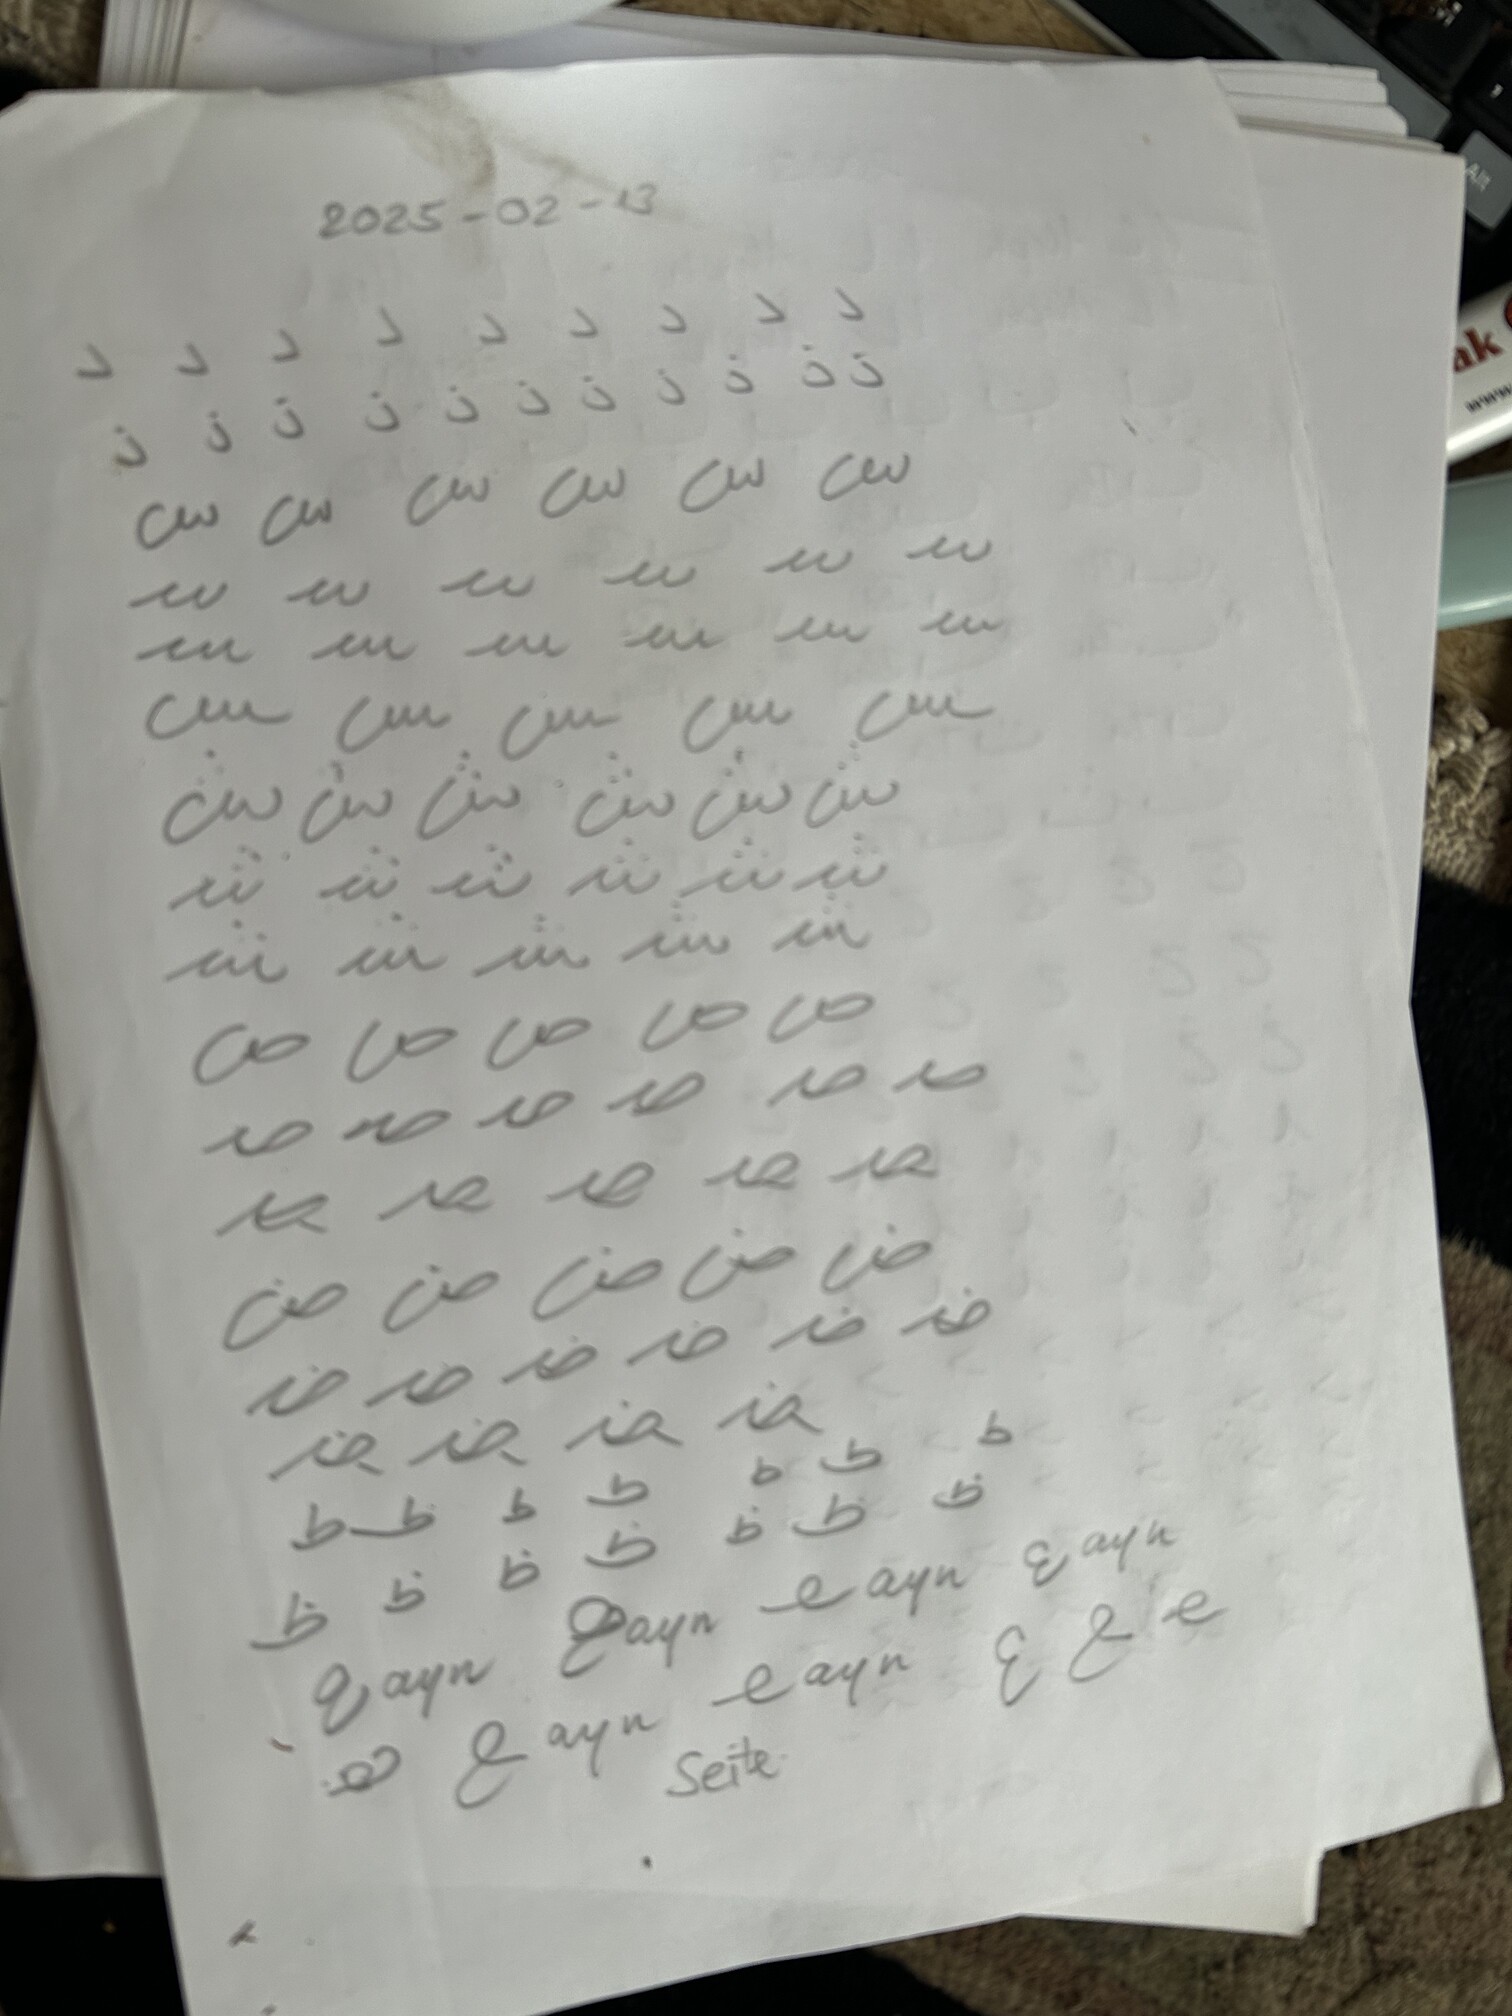 2025-02-13
د د د د د د د د د
ذ ذ ذ ذ ذ ذ ذ ذ ذ ذ ذ
س س س س س س
ـس ـس ـس ـس ـس ـس
ـسـ ـسـ ـسـ ـسـ ـسـ ـسـ
سـ سـ سـ سـ سـ
ش ش ش ش ش ش
شـ شـ شـ شـ شـ شـ
ـشـ ـشـ ـشـ ـشـ ـشـ
ص ص ص ص ص
صـ صـ صـ صـ صـ صـ
ـصـ ـصـ ـصـ ـصـ ـصـ
ض ض ض ض ض
ضـ ضـ ضـ ضـ ضـ ضـ
ـضـ ـضـ ـضـ ـضـ
ط ط ط ط ط ط ط
ظ ظ ظ ظ ظ ظ ظ
ع ayn ع ayn عـ ayn ع ayn
ع ayn عـ ayn ع ع عـ
Seite
Alt
ak
www